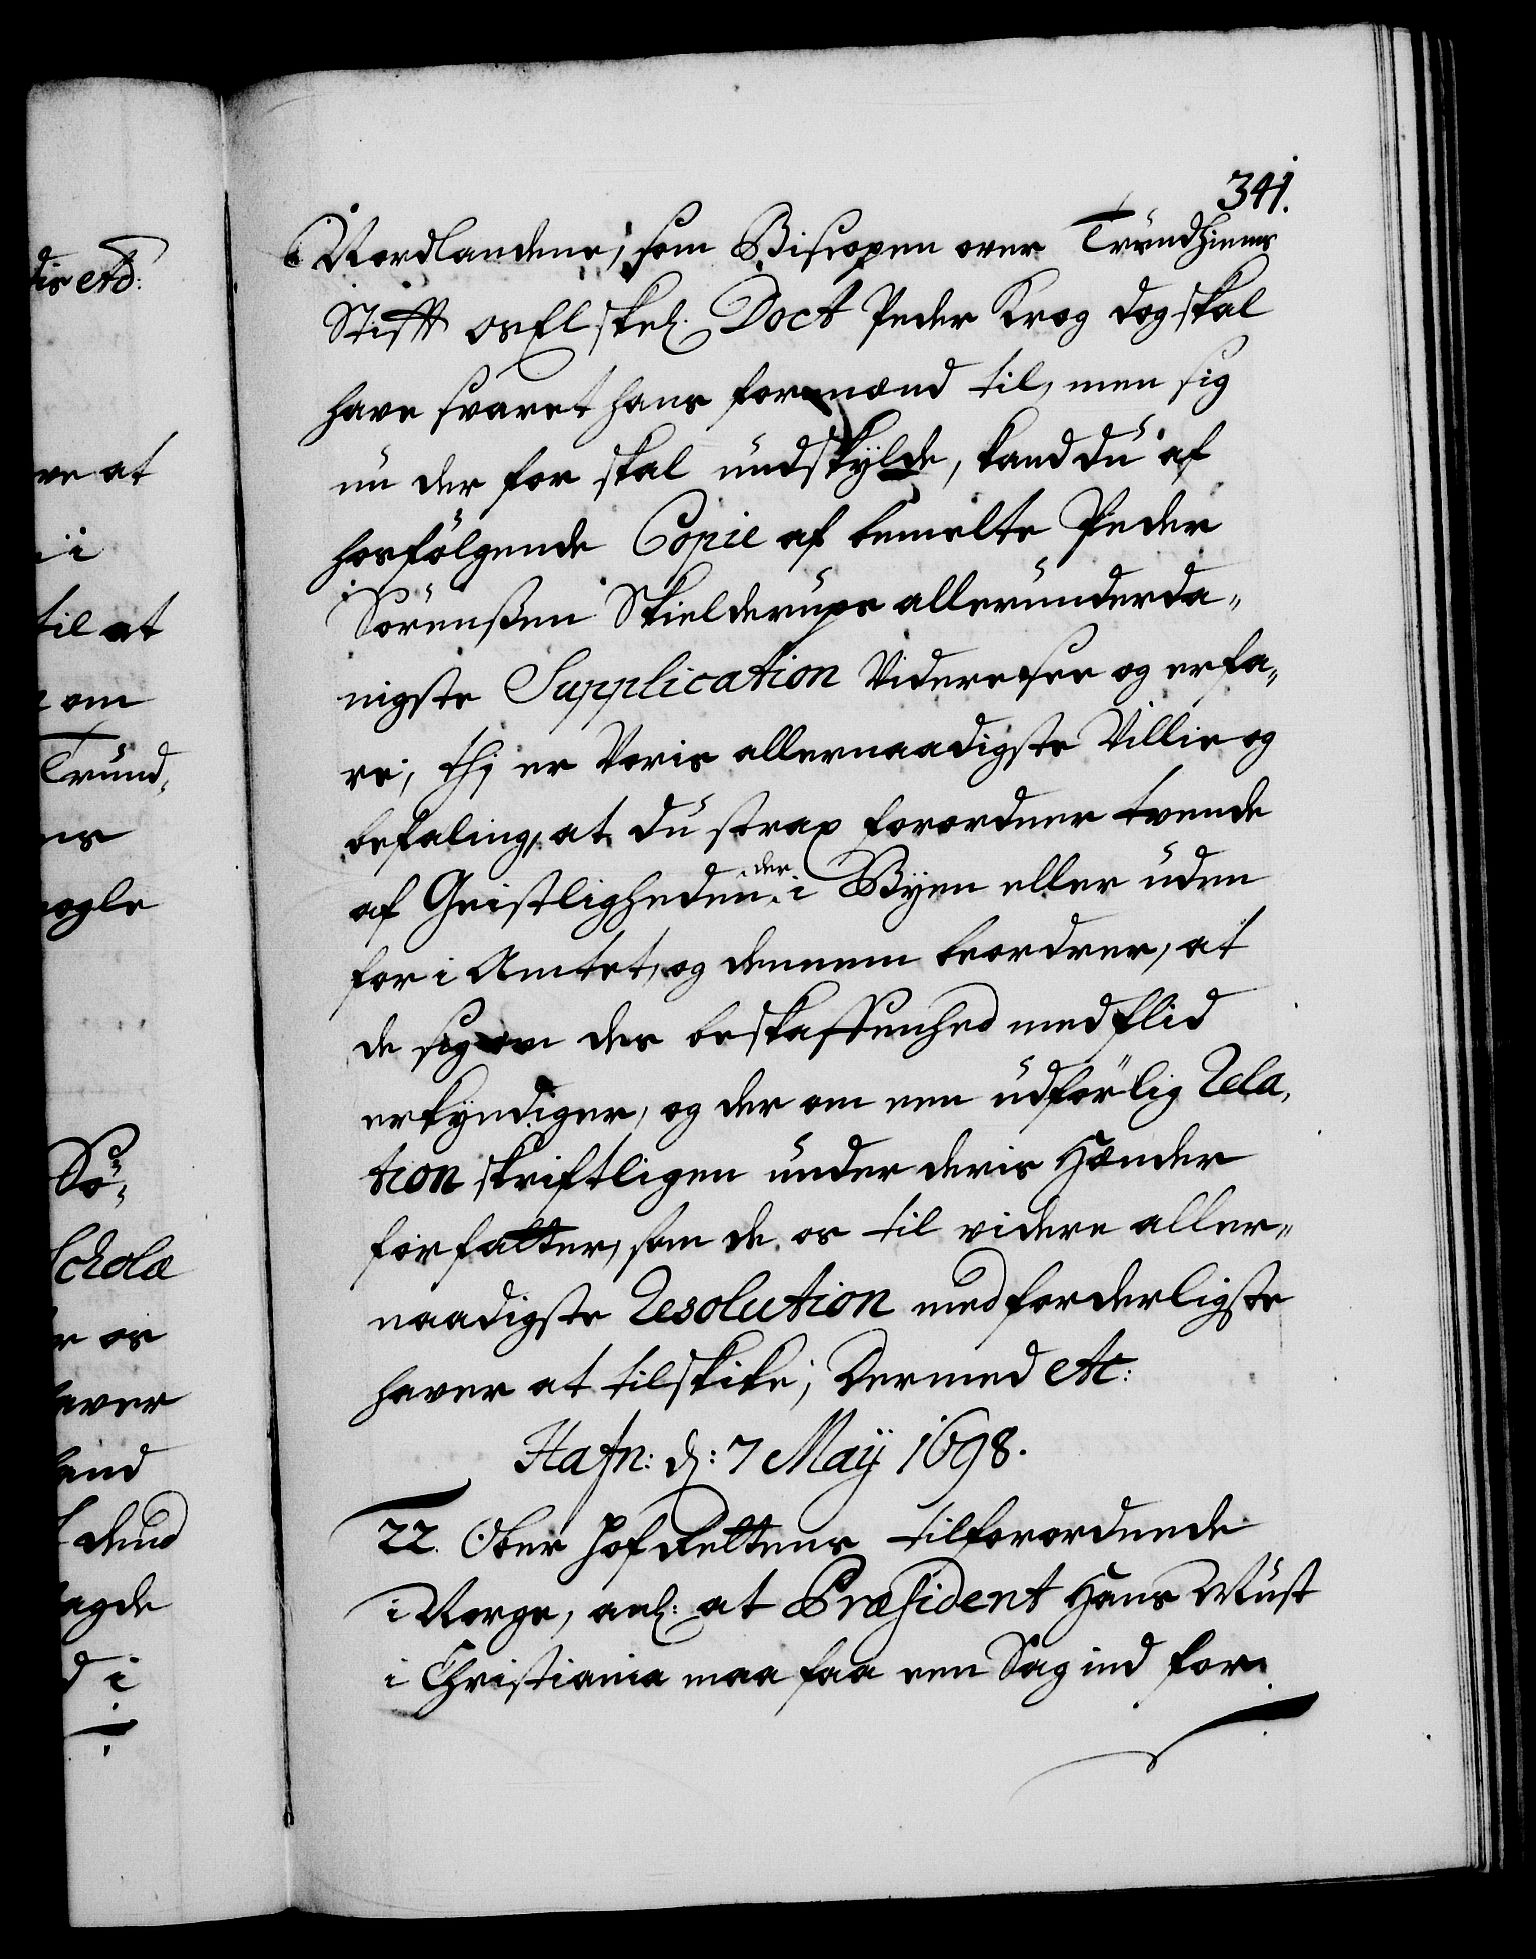 341.
Nordlandene, som Biscopen over Trundhiems
Stifft os Elskel. Doct Peder Krog dog skal
have svaret hans formænd til, men sig
nu der for skal undskylde, kand du af
hosfölgende Copie af bemelte Peder
Sörenssen Skielderups allerunderda¬
nigste Supplication Videre see og erfa¬
re, thj er Voris allernaadigste Villie og
befaling, at du strax forordner tvende
af Geistligheden der i Byen eller uden
for i Amtet, og dennem beordrer, at
de sig om des beskaffenhed med flid
erkyndiger, og der om een udförlig Rela¬
tion skriftligen under deris Hænder
forfatter, som de os til videre aller¬
naadigste Resolution med forderligste
haver at tilskike, Dermed etc:
Hafn: d: 7 Maij 1698.
22. Ober Hof Rettens tilforordnede
i Norge, anl: at Præsident Hans Must
i Christiania maa faa een Sag ind for
dis etc:
ve at
i
til at
om
Trund¬
ns
nogle
Sö¬
Scholæ
r os
haver
hand
dend
agde
d i